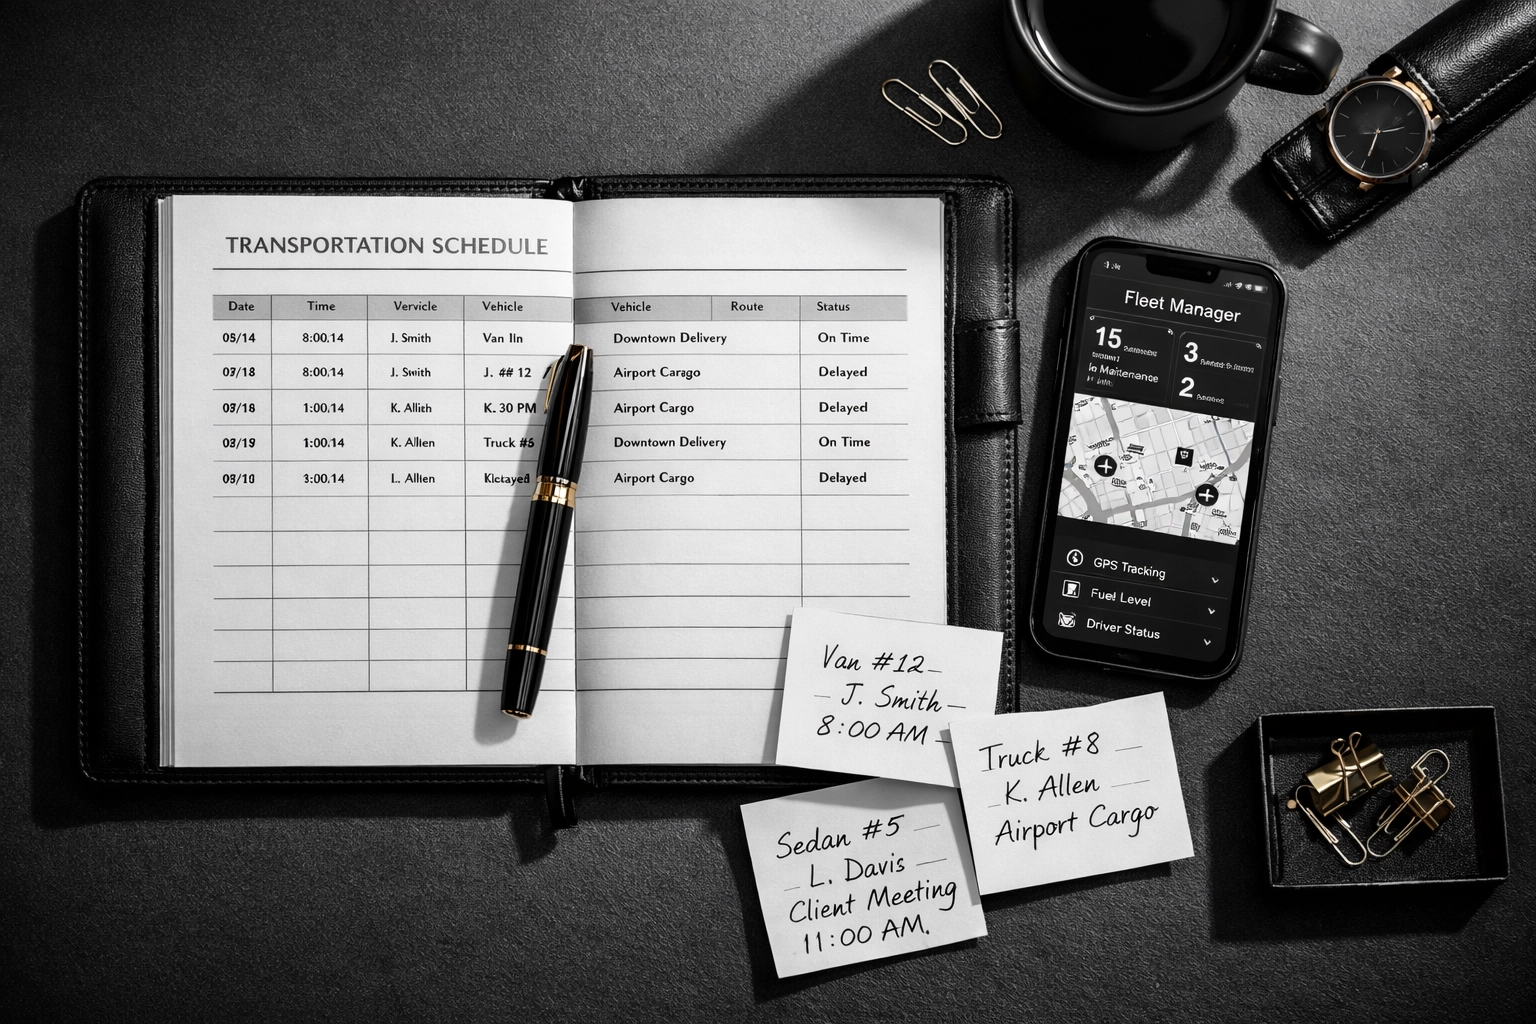 TRANSPORTATION SCHEDULE
Date Time Vervicle Vehicle Vehicle Route Status
05/14 8:00.14 J. Smith Van Iln Downtown Delivery On Time
07/18 8:00.14 J. Swith J. ## 12 Airport Carago Delayed
03/18 1:00.14 K. Allith K. 30 PM Airport Cargo Delayed
03/19 1:00.14 K. Allen Truck #6 Downtown Delivery On Time
09/10 3:00.14 L. Allen Airport Cargo Delayed
Fleet Manager
15
3
In Maintenance
2
GPS Tracking
Fuel Level
Driver Status
Van #12
J. Smith
8:00 AM
Truck #8
K. Allen
Airport Cargo
Sedan #5
L. Davis
Client Meeting
11:00 AM.